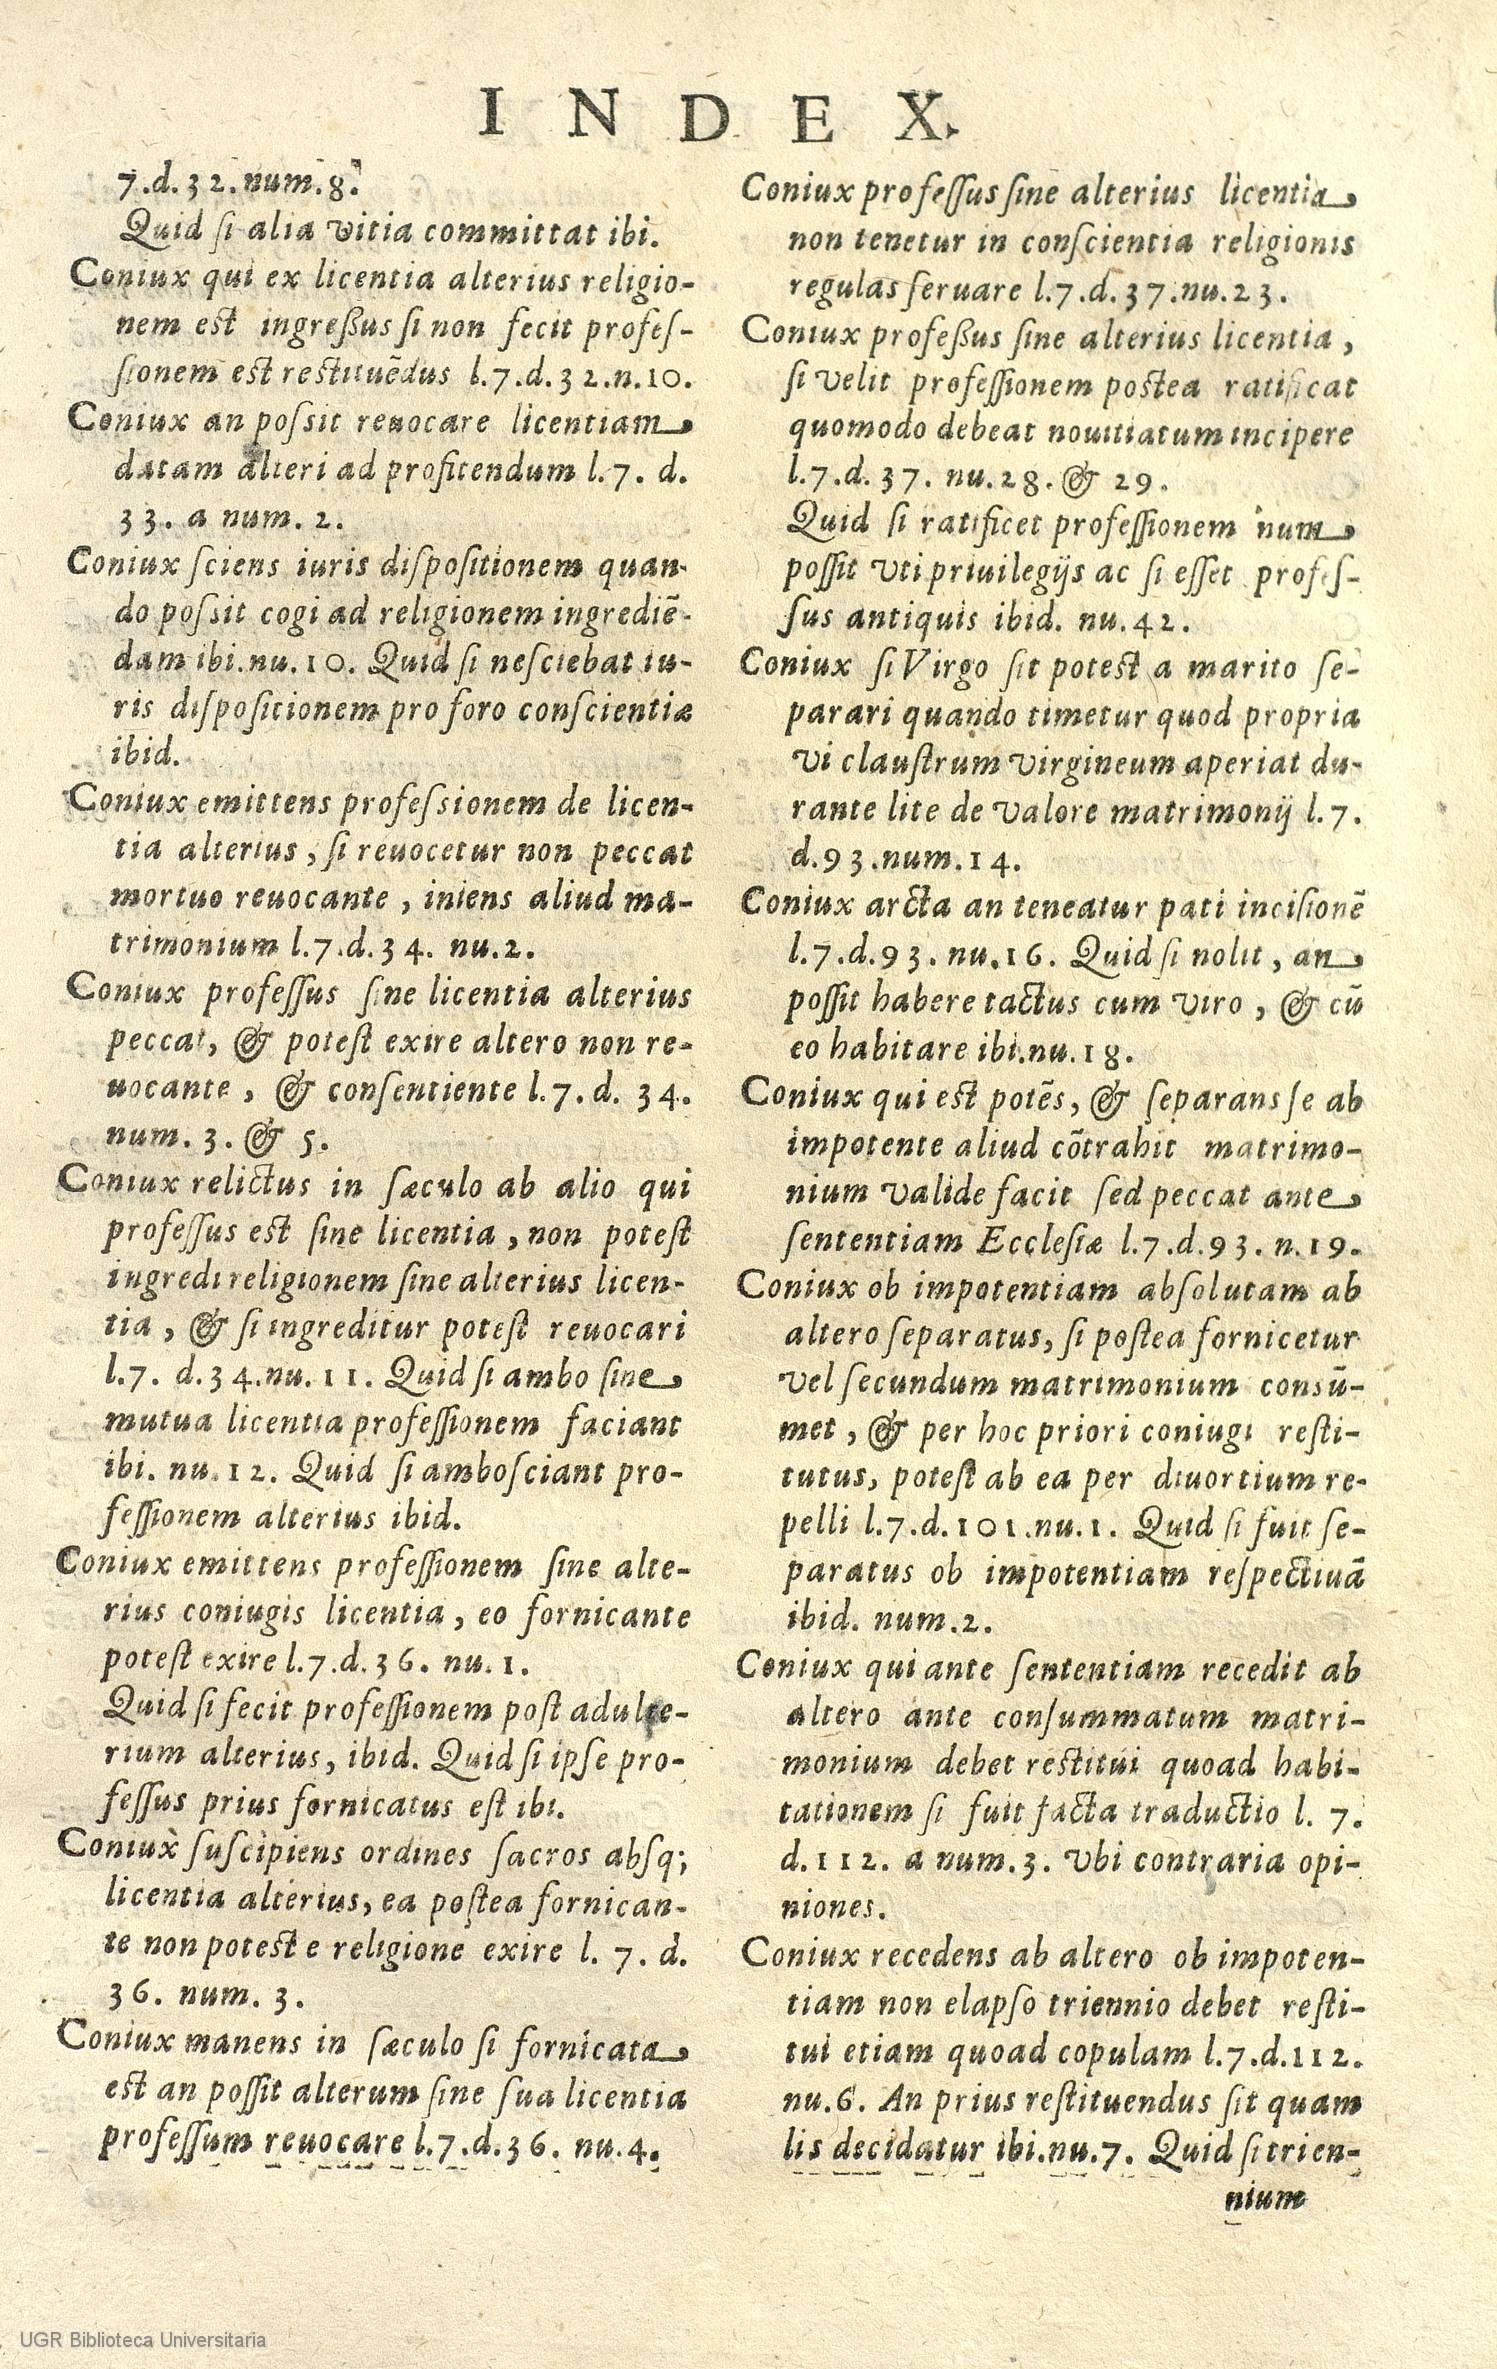 INDEX.
7.d.32.num.8.
Quid ſi alia vitia committat ibi.
Coniux qui ex licentia alterius religio-
nem est ingreßus ſi non fecit profeſ-
ſionem est restituẽdus l.7.d.32.n.10.
Coniux an poſsit reuocare licentiam
datam alteri ad profitendum l.7. d.
33. a num. 2.
Coniux ſciens iuris diſpoſitionem quan-
do poſsit cogi ad religionem ingrediẽ-
dam ibi.nu.10. Quid ſi neſciebat iu-
ris diſpoſitionem pro foro conſcientiæ
ibid.
Coniux emittens profeſsionem de licen-
tia alterius, ſi reuocetur non peccat
mortuo reuocante, iniens aliud ma-
trimonium l.7.d.34. nu.2.
Coniux profeſſus ſine licentia alterius
peccat, & poteſt exire altero non re-
uocante, & conſentiente l.7.d. 34.
num. 3. & 5.
Coniux relictus in ſæculo ab alio qui
profeſſus est ſine licentia, non poteſt
ingredi religionem ſine alterius licen-
tia, & ſi ingreditur poteſt reuocari
l.7. d.34.nu.11. Quid ſi ambo ſine
mutua licentia profeſſionem faciant
ibi. nu.12. Quid ſi ambo ſciant pro-
feſſionem alterius ibid.
Coniux emittens profeſſionem ſine alte-
rius coniugis licentia, eo fornicante
poteſt exire l.7.d.36. nu.1.
Quid ſi fecit profeſſionem poſt adulte-
rium alterius, ibid. Quid ſi ipſe pro-
feſſus prius fornicatus eſt ibi.
Coniux ſuſcipiens ordines ſacros abſq;
licentia alterius, ea poſtea fornican-
te non potest e religione exire l. 7. d.
36. num. 3.
Coniux manens in ſæculo ſi fornicata
est an poſſit alterum ſine ſua licentia
profeſſum reuocare l.7.d.36. nu.4.
Coniux profeſſus ſine alterius licentia
non tenetur in conſcientia religionis
regulas ſeruare l.7.d.37.nu.23.
Coniux profeßus ſine alterius licentia,
ſi velit profeſſionem postea ratificat
quomodo debeat nouitiatum incipere
l.7.d.37. nu.28. & 29.
Quid ſi ratificet profeſſionem num
poſſit vti priuilegijs ac ſi eſſet profeſ-
ſus antiquis ibid. nu.42.
Coniux ſi Virgo ſit potest a marito ſe-
parari quando timetur quod propria
vi clauſtrum virgineum aperiat du-
rante lite de valore matrimonij l.7.
d.93.num.14.
Coniux arcta an teneatur pati inciſionẽ
l.7.d.93. nu.16. Quid ſi nolit, an
poſſit habere tactus cum viro, & cũ
eo habitare ibi.nu.18.
Coniux qui est potẽs, & ſeparans ſe ab
impotente aliud cõtrahit matrimo-
nium valide facit ſed peccat ante
ſententiam Eccleſiæ l.7.d.93. n.19.
Coniux ob impotentiam abſolutam ab
altero ſeparatus, ſi poſtea fornicetur
vel ſecundum matrimonium conſũ-
met, & per hoc priori coniugi reſti-
tutus, poteſt ab ea per diuortium re-
pelli l.7.d.101.nu.1. Quid ſi fuit ſe-
paratus ob impotentiam reſpectiuã
ibid. num.2.
Coniux qui ante ſententiam recedit ab
altero ante conſummatum matri-
monium debet restitui quoad habi-
tationem ſi fuit facta traductio l. 7.
d.112. a num.3. vbi contraria opi-
niones.
Coniux recedens ab altero ob impoten-
tiam non elapſo triennio debet reſti-
tui etiam quoad copulam l.7.d.112.
nu.6. An prius reſtituendus ſit quam
lis decidatur ibi.nu.7. Quid ſi trien-
nium
UGR Biblioteca Universitaria